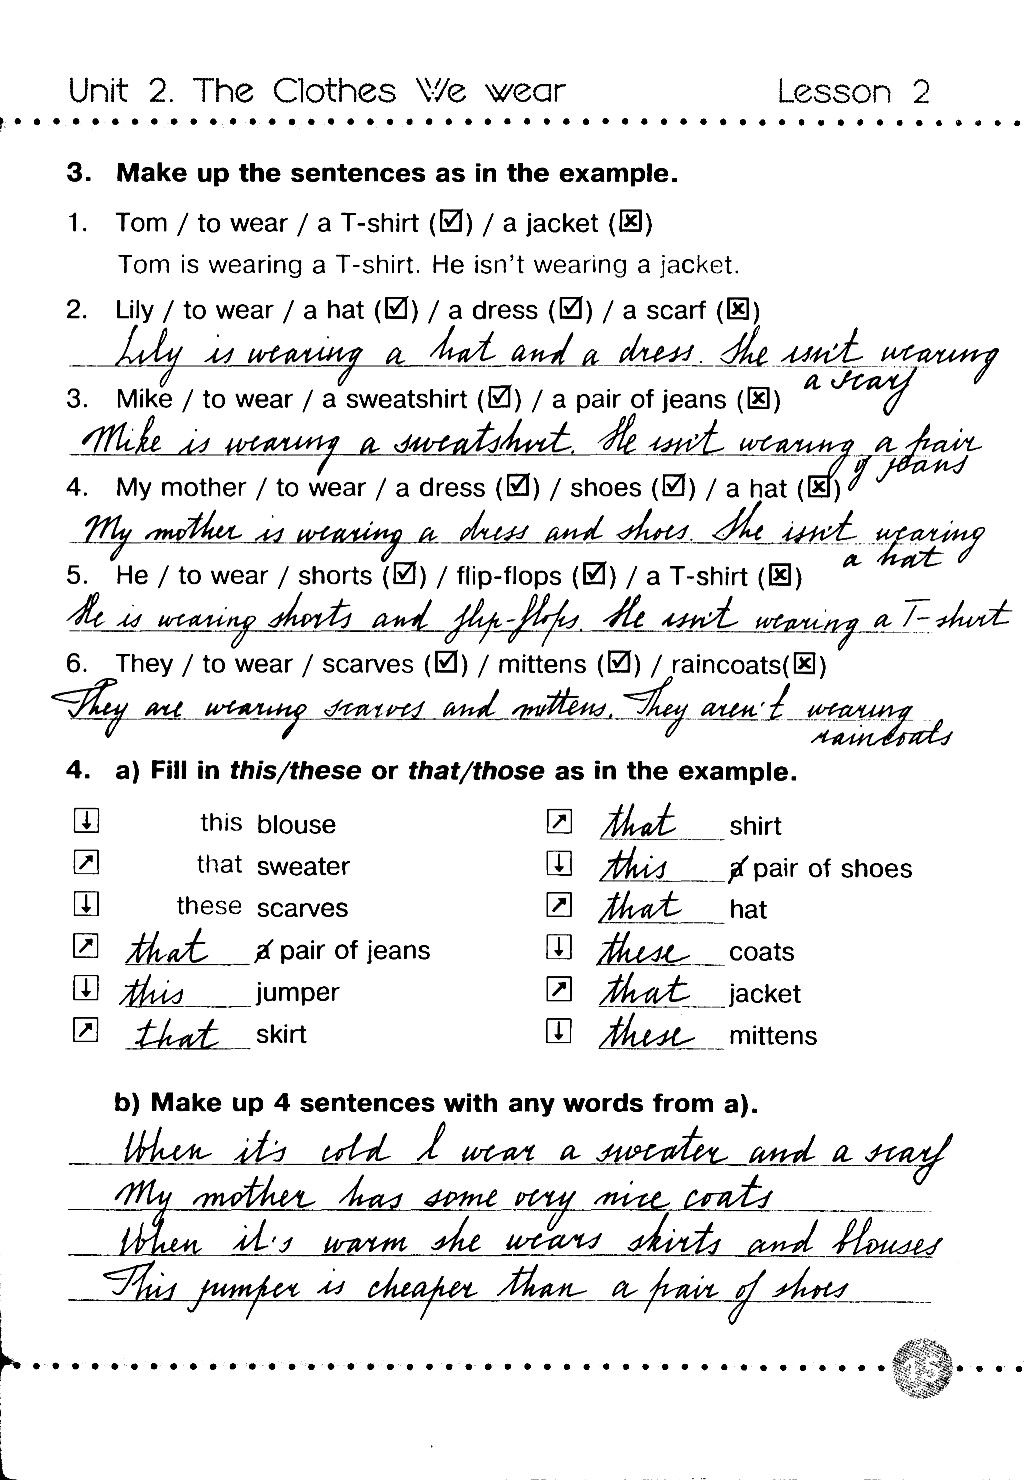 Unit 2. The Clothes We wear Lesson 2
3. Make up the sentences as in the example.
1. Tom / to wear / a T-shirt (☑) / a jacket (☒)
Tom is wearing a T-shirt. He isn't wearing a jacket.
2. Lily / to wear / a hat (☑) / a dress (☑) / a scarf (☒)
Lily is wearing a hat and a dress. She isn't wearing
a scarf
3. Mike / to wear / a sweatshirt (☑) / a pair of jeans (☒)
Mike is wearing a sweatshirt. He isn't wearing a pair
of jeans
4. My mother / to wear / a dress (☑) / shoes (☑) / a hat (☒)
My mother is wearing a dress and shoes. She isn't wearing
a hat
5. He / to wear / shorts (☑) / flip-flops (☑) / a T-shirt (☒)
He is wearing shorts and flip-flops. He isn't wearing a T-shirt
6. They / to wear / scarves (☑) / mittens (☑) / raincoats(☒)
They are wearing scarves and mittens. They aren't wearing
raincoats
4. a) Fill in this/these or that/those as in the example.
↓ this blouse
↗ that sweater
↓ these scarves
↗ that a pair of jeans
↓ this jumper
↗ that skirt
↗ that shirt
↓ this a pair of shoes
↗ that hat
↓ these coats
↗ that jacket
↓ these mittens
b) Make up 4 sentences with any words from a).
When it's cold I wear a sweater and a scarf
My mother has some very nice coats
When it's warm she wears skirts and blouses
This jumper is cheaper than a pair of shoes
15